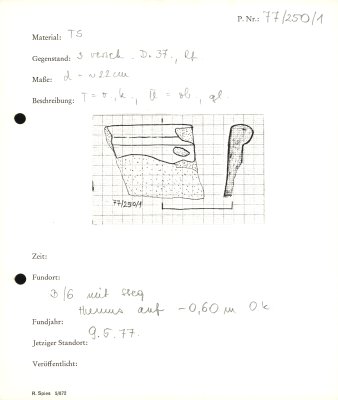 P. Nr.: 77/250/1
Material: TS
Gegenstand: 3 versch. D. 37., Rf
Maße: d - ~22cm
Beschreibung: T = o, k., = ob, gl.
77/250/1
Zeit:
Fundort:
B/6 mit Steg
Humus auf -0,60 m OK
Fundjahr: 9.5.77.
Jetziger Standort:
Veröffentlicht:
R. Spies 5/672